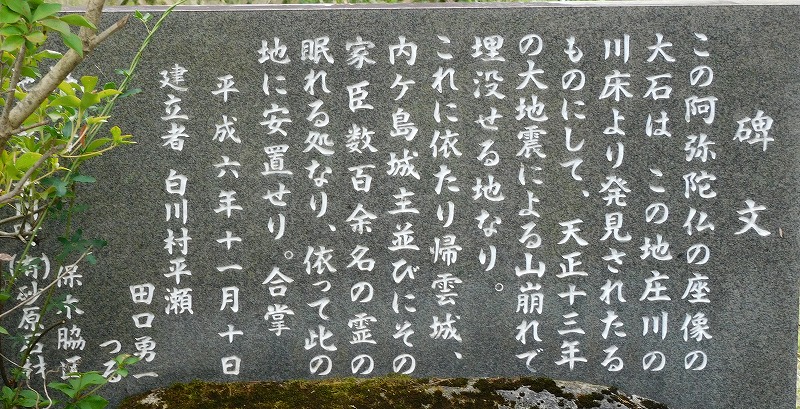 碑文
この阿弥陀仏の座像の
大石は この地庄川の
川床より発見されたる
ものにして、天正十三年
の大地震による山崩れで
埋没せる地なり。
これに依たり帰雲城、
内ケ島城主並びにその
家臣数百余名の霊の
眠れる処なり、依って此の
地に安置せり。合掌
平成六年十一月十日
建立者 白川村平瀬
田口勇一
つる
保木脇区
(有)砂原石材